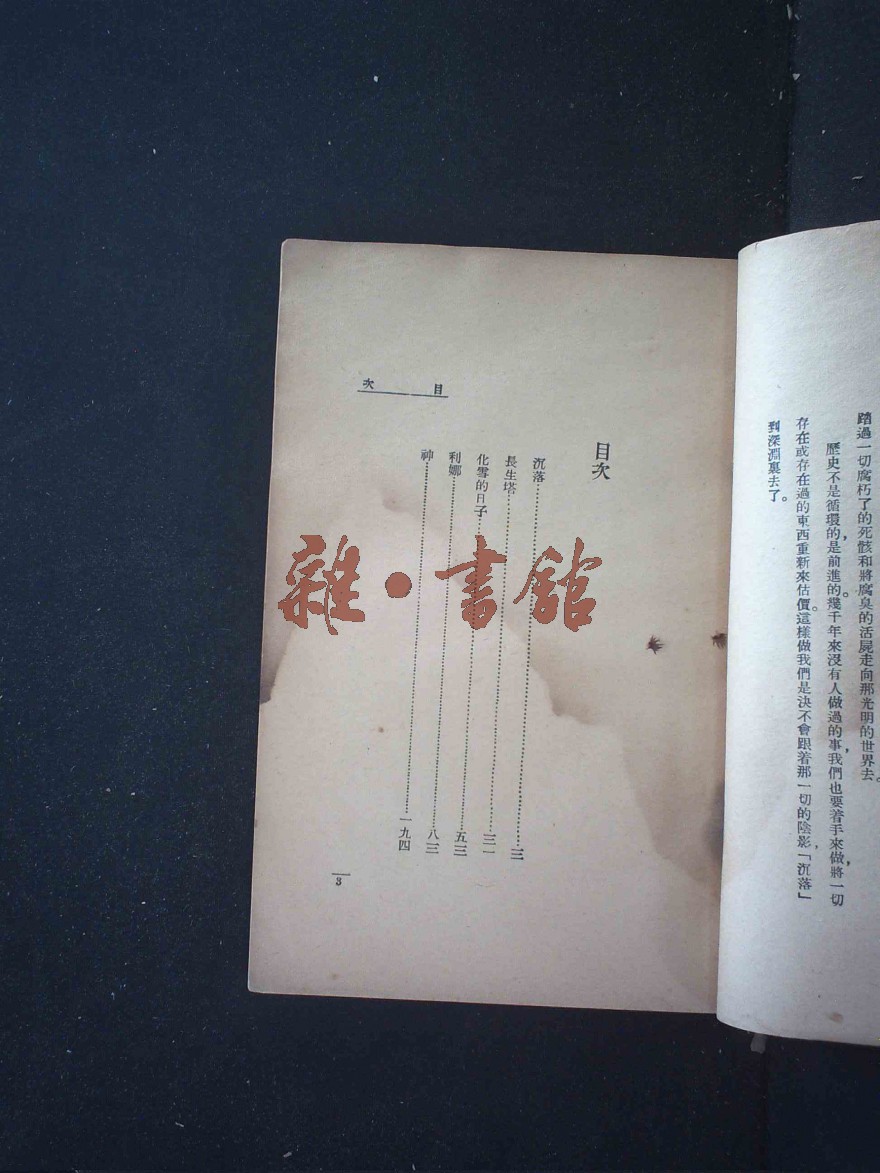 踏過一切腐朽了的死骸和將腐臭的活屍走向那光明的世界去。
歷史不是循環的，是前進的。幾千年來沒有人做過的事，我們也要着手來做，將一切
存在或存在過的東西重新來估價。這樣做我們是決不會跟着那一切的陰影，「沉落」
到深淵裏去了。
目次
目次
沉落
長生塔
三一
化雪的日子
利娜
神
一九四
3
雜·書館